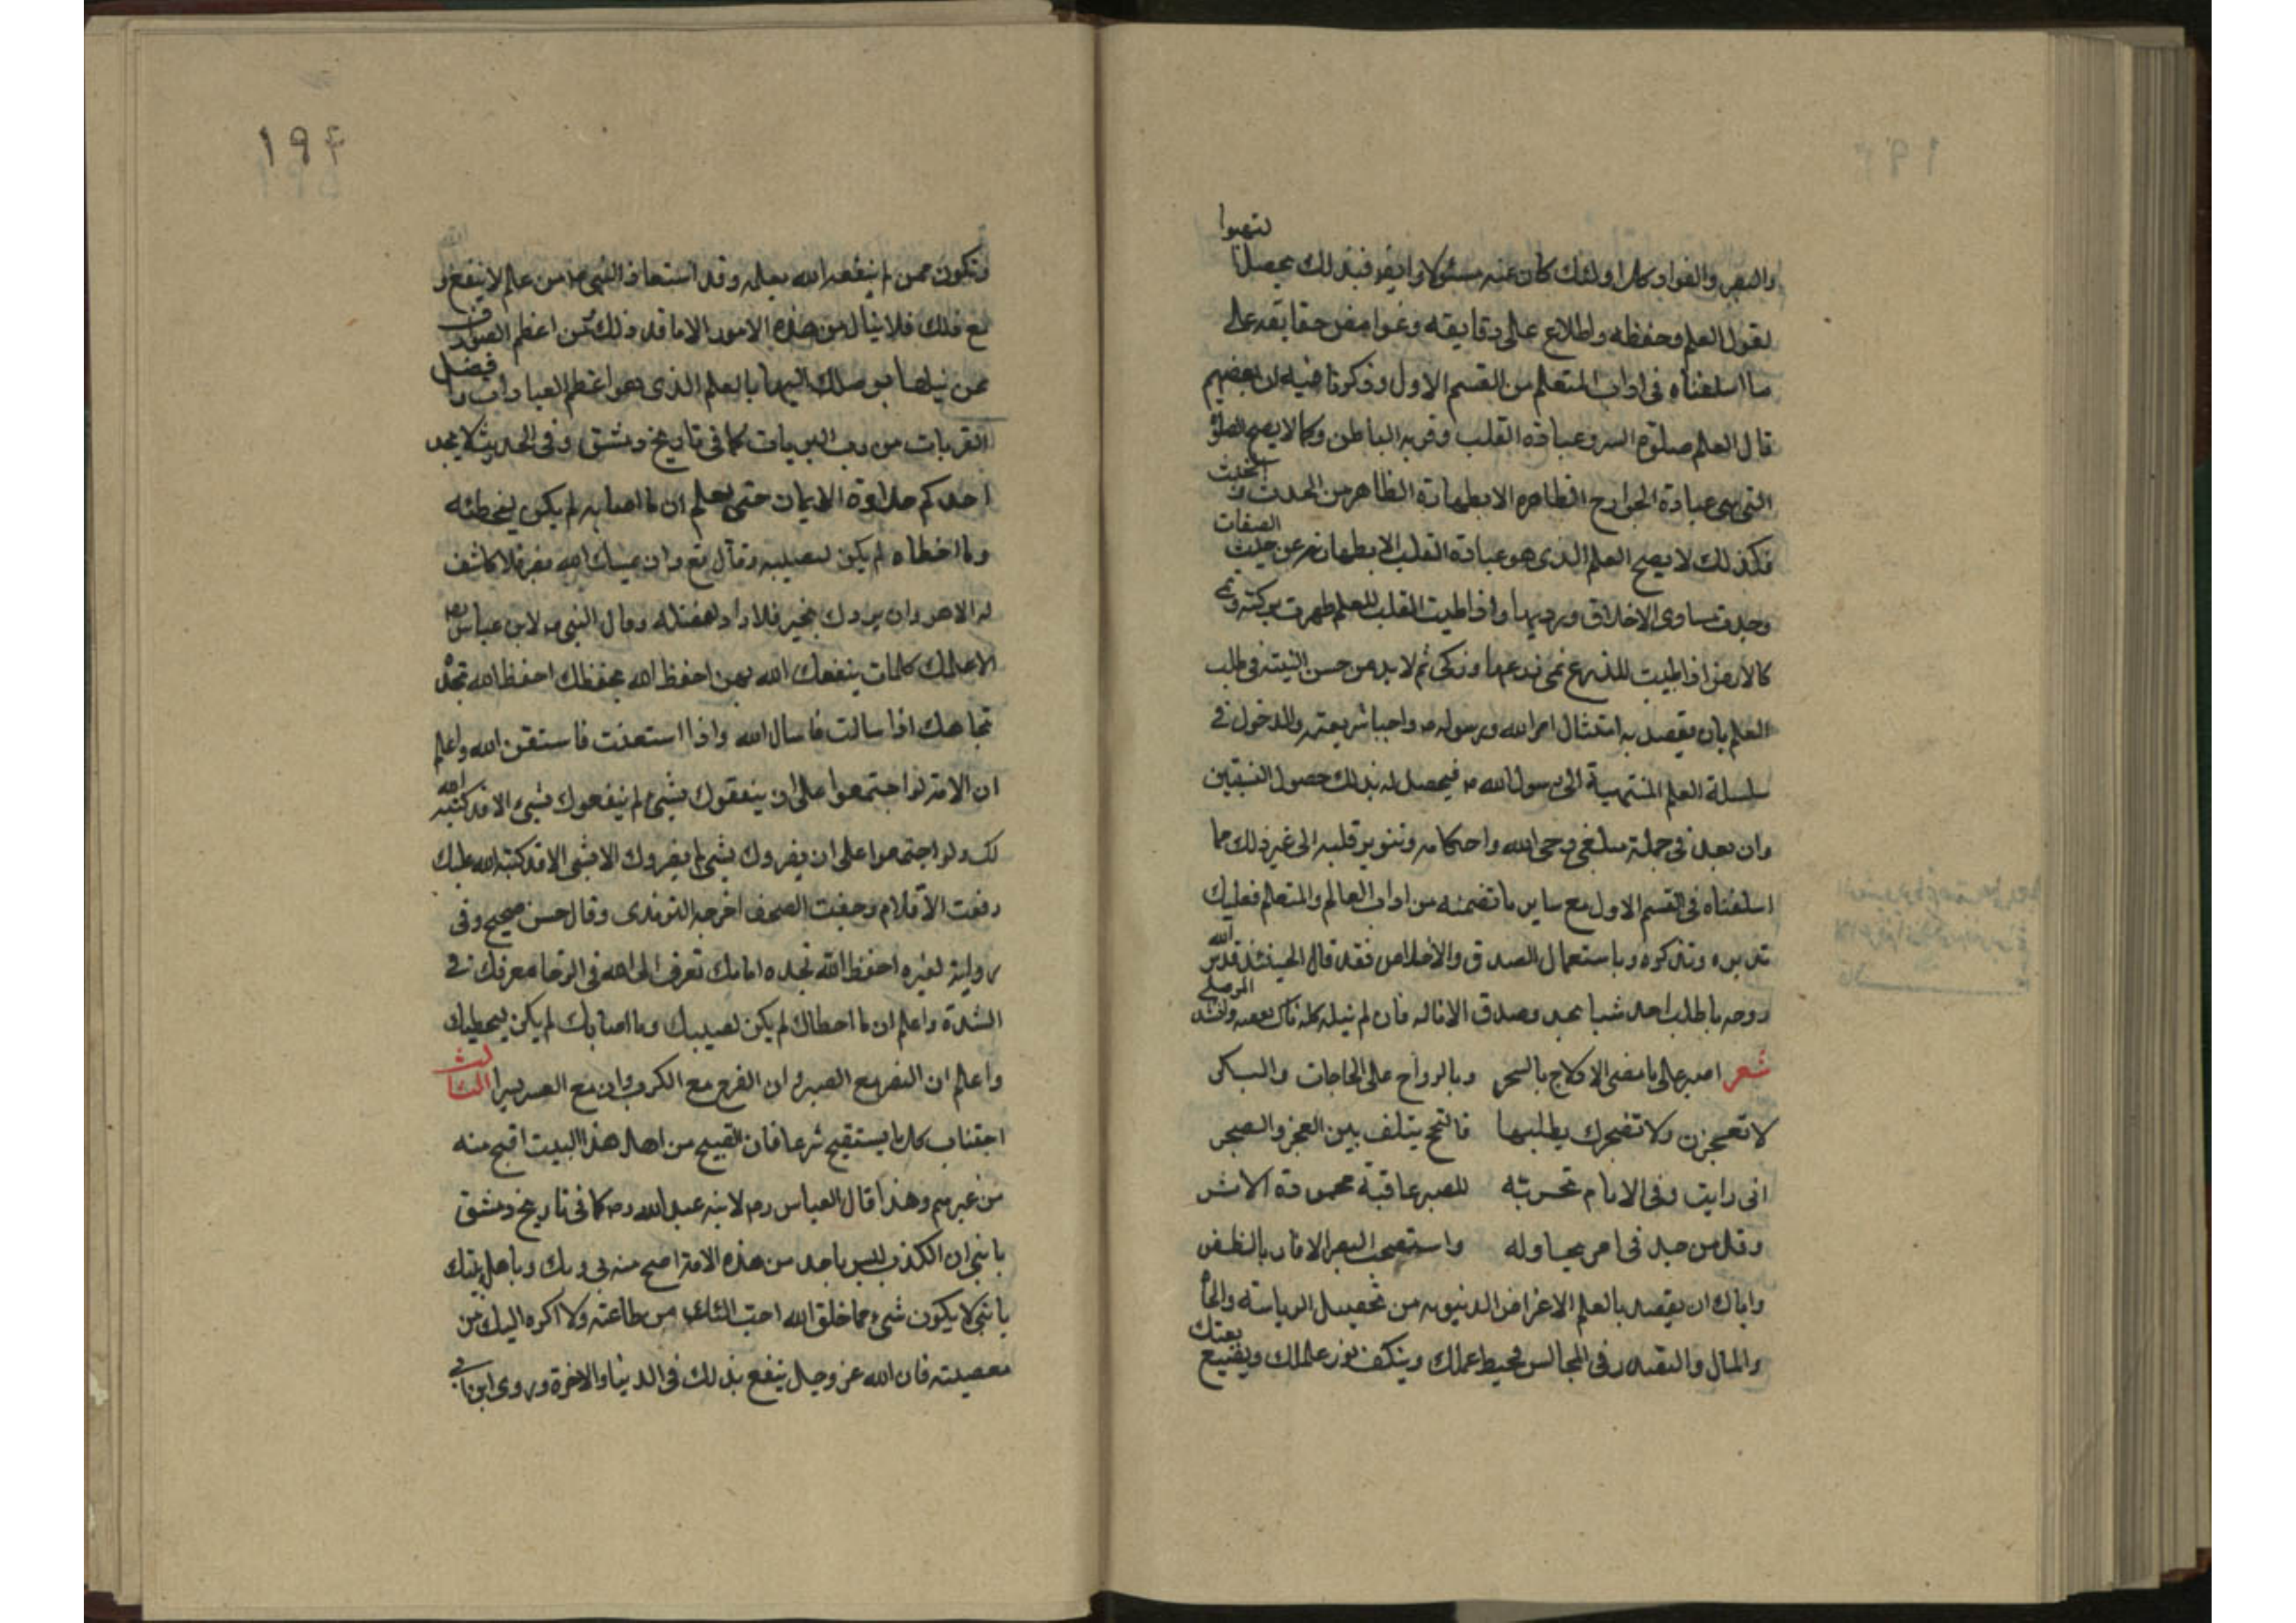 والبصر والفواد كل اولئك كان عنه مسئولا وايضا فبذلك يحصل تتهيوا
لقبول العلم وحفظه واطلاع على دقايقه وغوامض حقايقه على
ما اسلفناه فى اداب المتعلم من القسم الاول وذكرنا فيه ان بعضهم
قال العلم صلوة السر وعبادة القلب وقربه الباطن وكما لا يصح الصلوة
التى هى عبادة الجوارح الظاهره الا بطهارة الظاهر من الحدث و الخبث
فكذلك لا يصح العلم الذى هو عبادة القلب الا بطهارته عن خبث الصفات
وحدث مساوى الاخلاق ورديها واذا طيب القلب للعلم ظهرت بركته ونمى
كالارض اذا طيبت للذرع نمى زرعها وزكى ثم لا بد من حسن النيته فى طلب
العلم بان يقصد به امتثال امر الله ورسوله ص واحيا شريعته والدخول فى
سلسلة العلم المنتهية الى رسول الله ص فيحصل له بذلك حصول النسبتين
وان يعد فى جملة مبلغى وحى الله واحكامه وتنوير قلبه الى غير ذلك مما
اسلفناه فى القسم الاول مع ساير ما تضمنه من اداب العالم والمتعلم فعليك
تدبره وتذكره وباستعمال الصدق والاخلاص فقد قال الجنيد قدس الله
روحه ما طلب احد شيا بجد وصدق الا ناله فان لم ينله كله نال بعضه وانشد الموصلى
شعر اصبر على مضض الادلاج بالسحر وبالرواح على الحاجات والبكر
لا تعجزن ولا تضجرك يطلبها فالنجح يتلف بين العجز والضجر
انى رايت وفى الايام تجربة للصبر عاقبة محمودة الاثر
وقل من جد فى امر يحاوله واستصحب الصبر الا فاز بالظفر
واياك ان يقصد بالعلم الاغراض الدنيويه من تحصيل الرياسة والجاه
والمال والتصدر فى المجالس فيحبط عملك وينكف نور علمك ويضيع تعبك
١٩٤
وتكون ممن لم ينفعه الله بعلمه وقد استعاذ النبى ص من علم لا ينفع و
مع ذلك فلا ينال من هذه الامور الا ما قدر لك من اعظم الصوارف
عن نيلها بوصلك اليها بالعلم الذى هو اعظم العبادات وافضل
القربات من رب البريات كما فى تاريخ دمشق وفى الحديث لا يجد
احدكم حلاوة الايمان حتى يعلم ان ما اصابه لم يكن ليخطئه
وما اخطاه لم يكن ليصيبه وقال تع وان يمسسك الله بضر فلا كاشف
له الا هو وان يردك بخير فلا راد لفضله وقال النبى ص لابن عباس رض
الا اعلمك كلمات ينفعك الله بهن احفظ الله يحفظك احفظ الله تجده
تجاهك اذا سالت فاسال الله واذا استعنت فاستعن الله واعلم
ان الامة لو اجتمعوا على ان ينفعوك بشئ لم ينفعوك بشئ الا قد كتبه الله
لك ولو اجتمعوا على ان يضروك بشئ لم يضروك الا بشئ الا قد كتبه الله عليك
رفعت الاقلام وجفت الصحف اخرجه الترمذى وقال حسن صحيح وفى
رواية لغيره احفظ الله تجده امامك تعرف الى الله فى الرخا يعرفك فى
الشدة واعلم ان ما اخطاك لم يكن ليصيبك وما اصابك لم يكن ليخطيك
واعلم ان النصر مع الصبر وان الفرج مع الكرب وان مع العسر يسرا الثالث
اجتناب كل ما يستقبح شرعا فان القبيح من اهل هذا البيت اقبح منه
من غيرهم وهذا قال العباس رض لابنه عبد الله رض كما فى تاريخ دمشق
يا بنى ان الكذب ليس باحد من هذه الامة اقبح منه بى وبك وباهل بيتك
يا بنى لا يكون شئ مما خلق الله احب اليك من طاعته ولا اكره اليك من
معصيته فان الله عز وجل ينفع بذلك فى الدينا والاخرة وروى ابن ابى